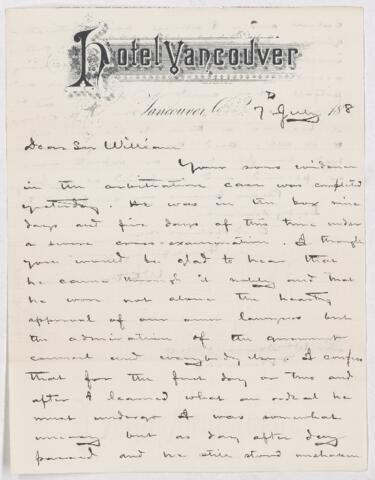 Hotel Vancouver
Vancouver, 7 July 188
Dear Sir William
Your sons evidence
in the arbitration case was completed
yesterday. He was in the box nine
days and five days of this time under
a severe cross-examination. I thought
you would be glad to hear that
he came through it nobly and that
he won not alone the hearty
approval of our own lawyers but
the admiration of the government
counsel and everybody else. I confess
that for the first day or two and
after I learned what an ordeal he
must undergo I was somewhat
uneasy but as day after day
passed and he still stood unshaken